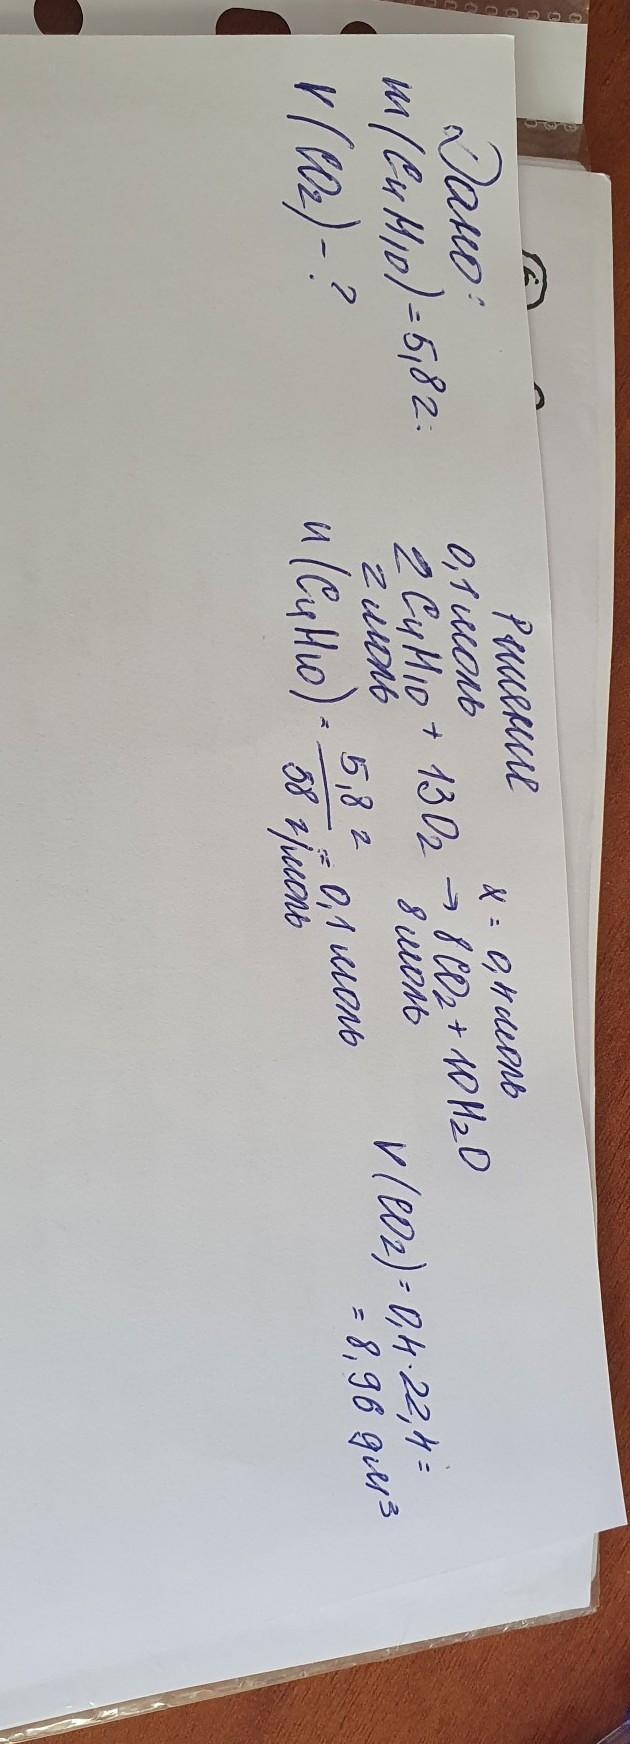 Дано:
m(C4H10) = 5,8 г.
V(CO2) - ?
Решение
0,1 моль
x = 0,4 моль
2C4H10 + 13O2 → 8CO2 + 10H2O
2 моль
8 моль
n(C4H10) = 5,8 г / 58 г/моль = 0,1 моль
V(CO2) = 0,4 · 22,4 =
= 8,96 дм3